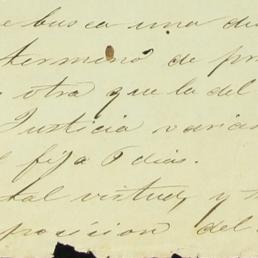 e busca una di
termino de pr
otra que la del
Justicia varias
l fija 6 dias.
tal virtud, y
posicion del